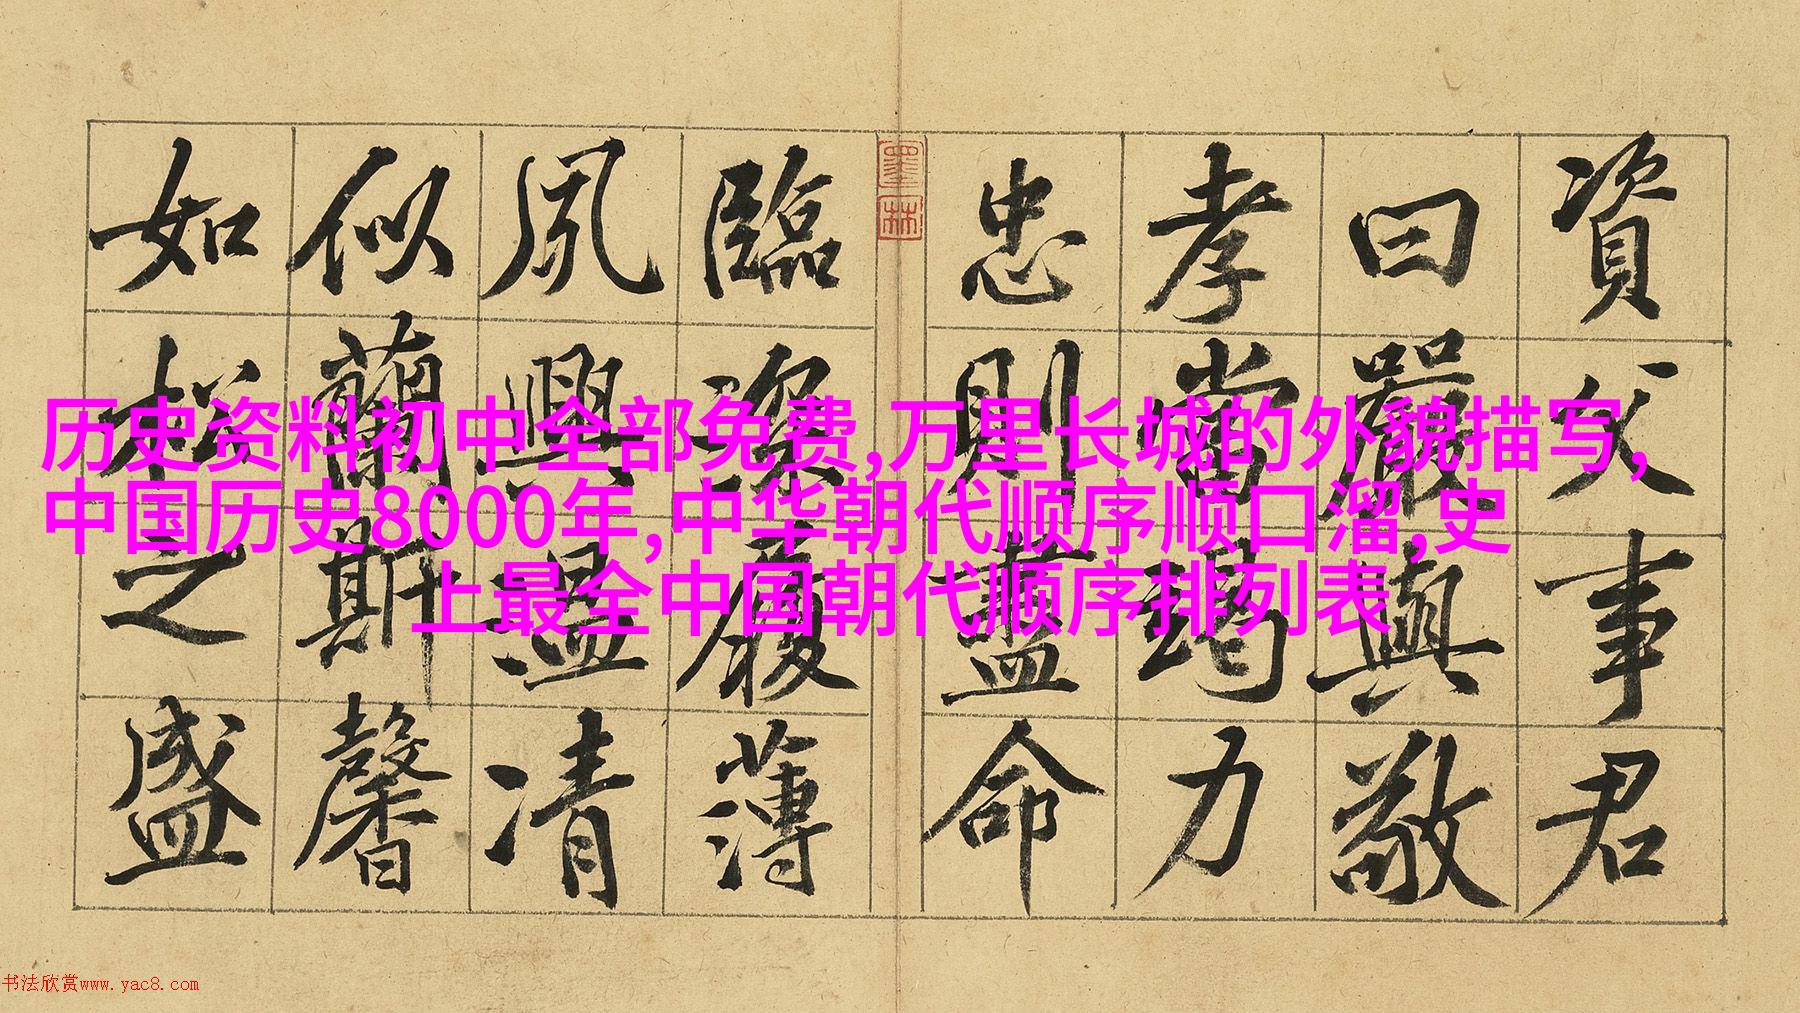 資父事君
曰嚴與敬
孝當竭力
忠則盡命
墨林
臨深履薄
夙興溫凊
似蘭斯馨
如松之盛
历史资料初中全部免费,万里长城的外貌描写,
中国历史8000年,中华朝代顺序顺口溜,史
上最全中国朝代顺序排列表
书法欣赏www.yac8.com